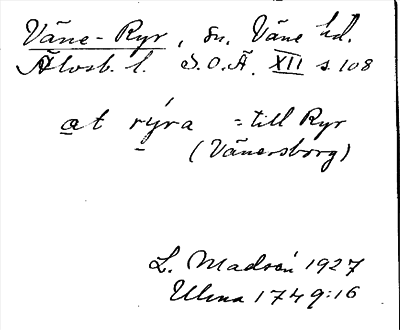 Väne-Ryr, sn. Väne hd.
Älvsb. l. S.O.Ä. XII s. 108
at rýra = till Ryr
(Vänersborg)
L. Madsén 1927
Ulma 1749:16